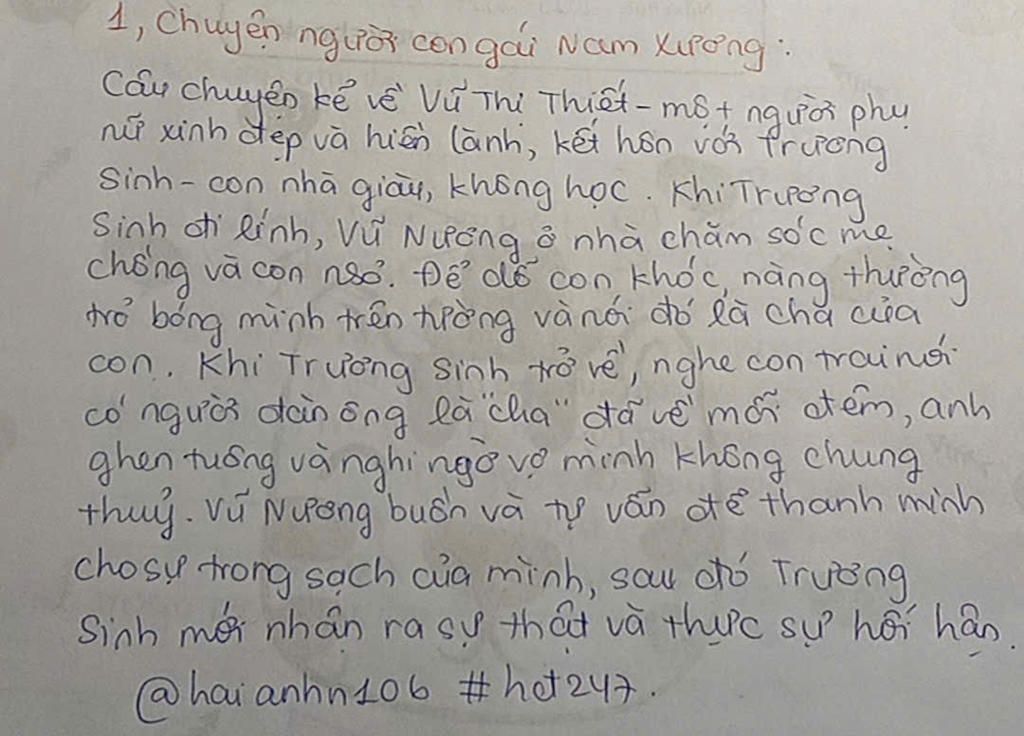 1, Chuyện người con gái Nam Xương:
Câu chuyện kể về Vũ Thị Thiết - một người phụ
nữ xinh đẹp và hiền lành, kết hôn với Trương
Sinh - con nhà giàu, không học. Khi Trương
Sinh đi lính, Vũ Nương ở nhà chăm sóc mẹ
chồng và con nhỏ. Để dỗ con khóc, nàng thường
trỏ bóng mình trên tường và nói đó là cha của
con. Khi Trương Sinh trở về, nghe con trai nói
có người đàn ông là "cha" đã về mỗi đêm, anh
ghen tuông và nghi ngờ vợ mình không chung
thuỷ. Vũ Nương buồn và tự vẫn để thanh minh
cho sự trong sạch của mình, sau đó Trương
Sinh mới nhận ra sự thật và thực sự hối hận.
@haianhn106 #hot247.